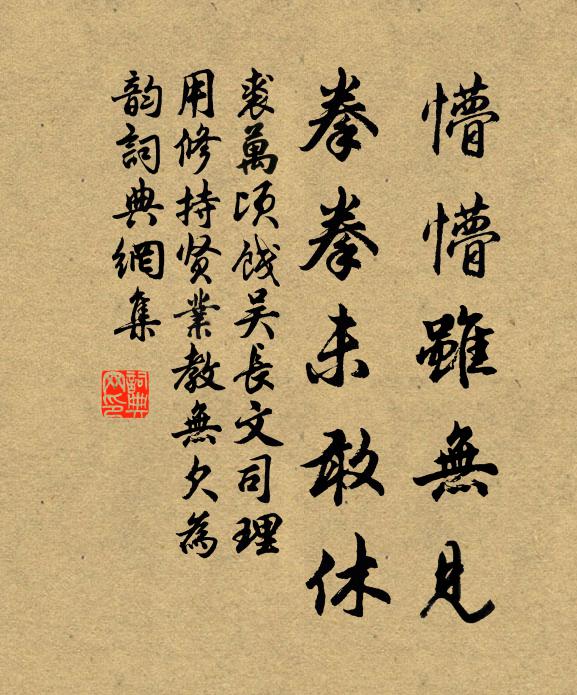 懵懵雖無見
拳拳未敢休
裘萬頃餞吴長文司理
用修持贤業教無久為
韵詞典網集
詞典網印